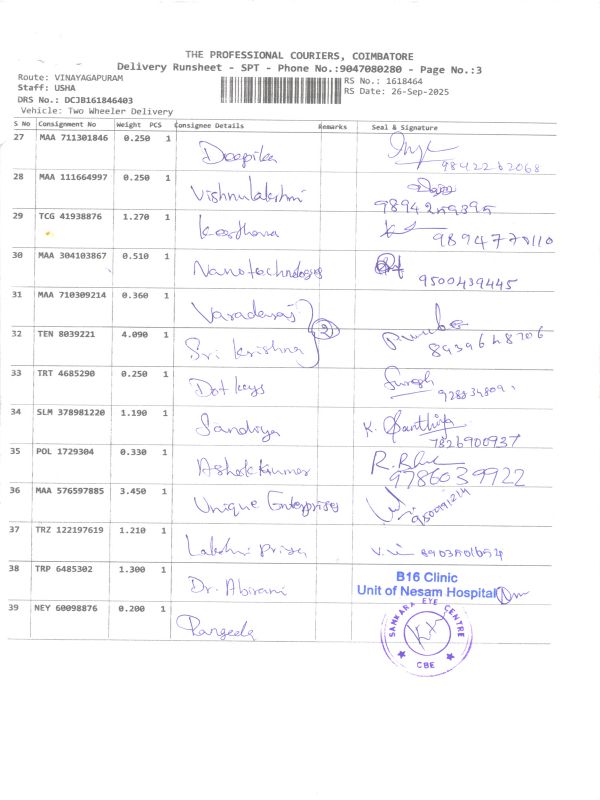 THE PROFESSIONAL COURIERS, COIMBATORE
Delivery Runsheet - SPT - Phone No.:9047080280 - Page No.:3
Route: VINAYAGAPURAM
RS No.: 1618464
Staff: USHA
RS Date: 26-Sep-2025
DRS No.: DCJB161846403
Vehicle: Two Wheeler Delivery
S No Consignment No Weight PCS Consignee Details Remarks Seal & Signature
27 MAA 711301846 0.250 1 Deepika
9842262068
28 MAA 111664997 0.250 1 Vishnulakshmi
9894259395
29 TCG 41938876 1.270 1
9894770110
30 MAA 304103867 0.510 1 Nanotechnologies
9500439445
31 MAA 710309214 0.360 1 Varadaraj
2
32 TEN 8039221 4.090 1 Sri Krishna
8939648706
33 TRT 4685290 0.250 1 Dot keys Suresh
34 SLM 378981220 1.190 1 Sandiya K. Santhiya
7826900937
35 POL 1729304 0.330 1 Ashokkumar R.
9786039922
36 MAA 576597885 3.450 1 Unique Enterprises
9500991214
37 TRZ 122197619 1.210 1 Lakshmi Priya
38 TRP 6485302 1.300 1 Dr. Abirami B16 Clinic
Unit of Nesam Hospital
39 NEY 60098876 0.200 1
SANKARA EYE CENTRE
CBE